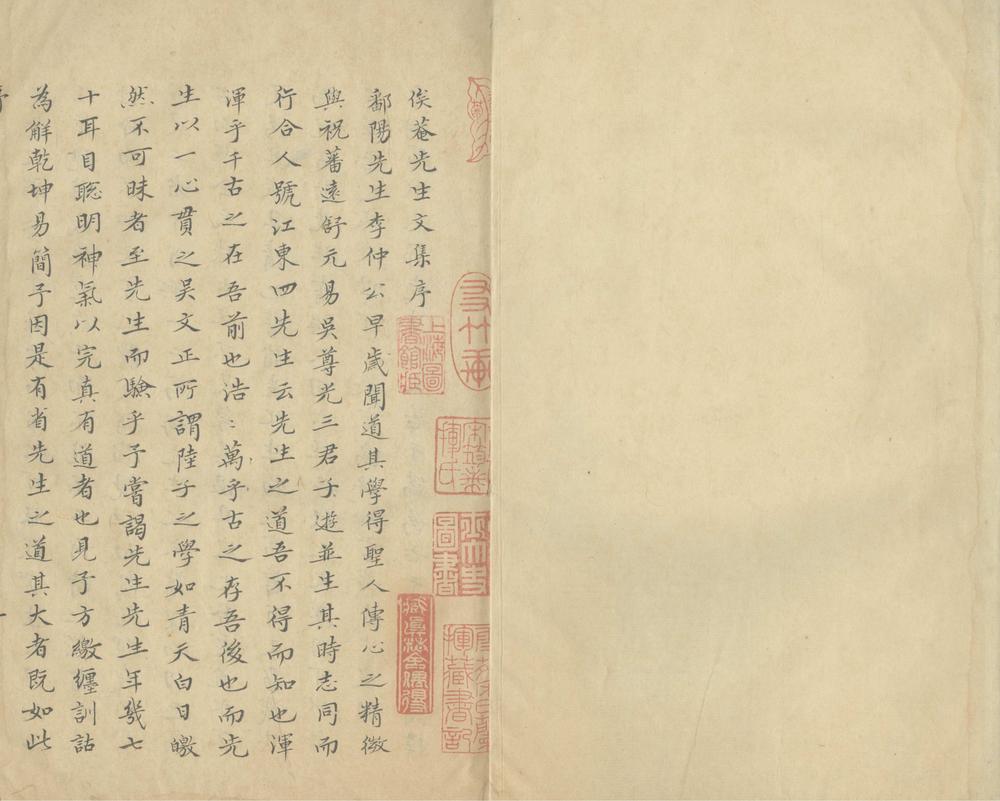 俟菴先生文集序
鄱陽先生李仲公早歲聞道其學得聖人傳心之精微
與祝蕃遠舒元易吳尊光三君子遊並生其時志同而
行合人號江東四先生云先生之道吾不得而知也渾
渾乎千古之在吾前也浩〻萬乎古之存吾後也而先
生以一心貫之吳文正所謂陸子之學如青天白日皦
然不可昧者至先生而驗乎予嘗謁先生先生年幾七
十耳目聡明神氣以完真有道者也見予方繳纒訓詁
為解乾坤易簡予因是有省先生之道其大者既如此
序
一
上海圖書館藏
圖書
揮藏書記